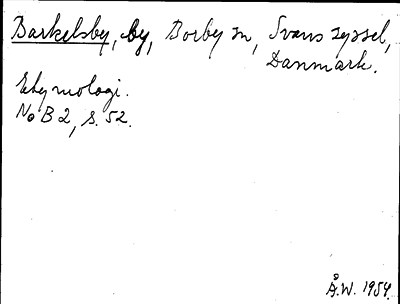 Barkelsby, by, Borby sn, Svans syssel,
Danmark.
Etymologi.
No B 2, s. 52.
Å.W. 1954.